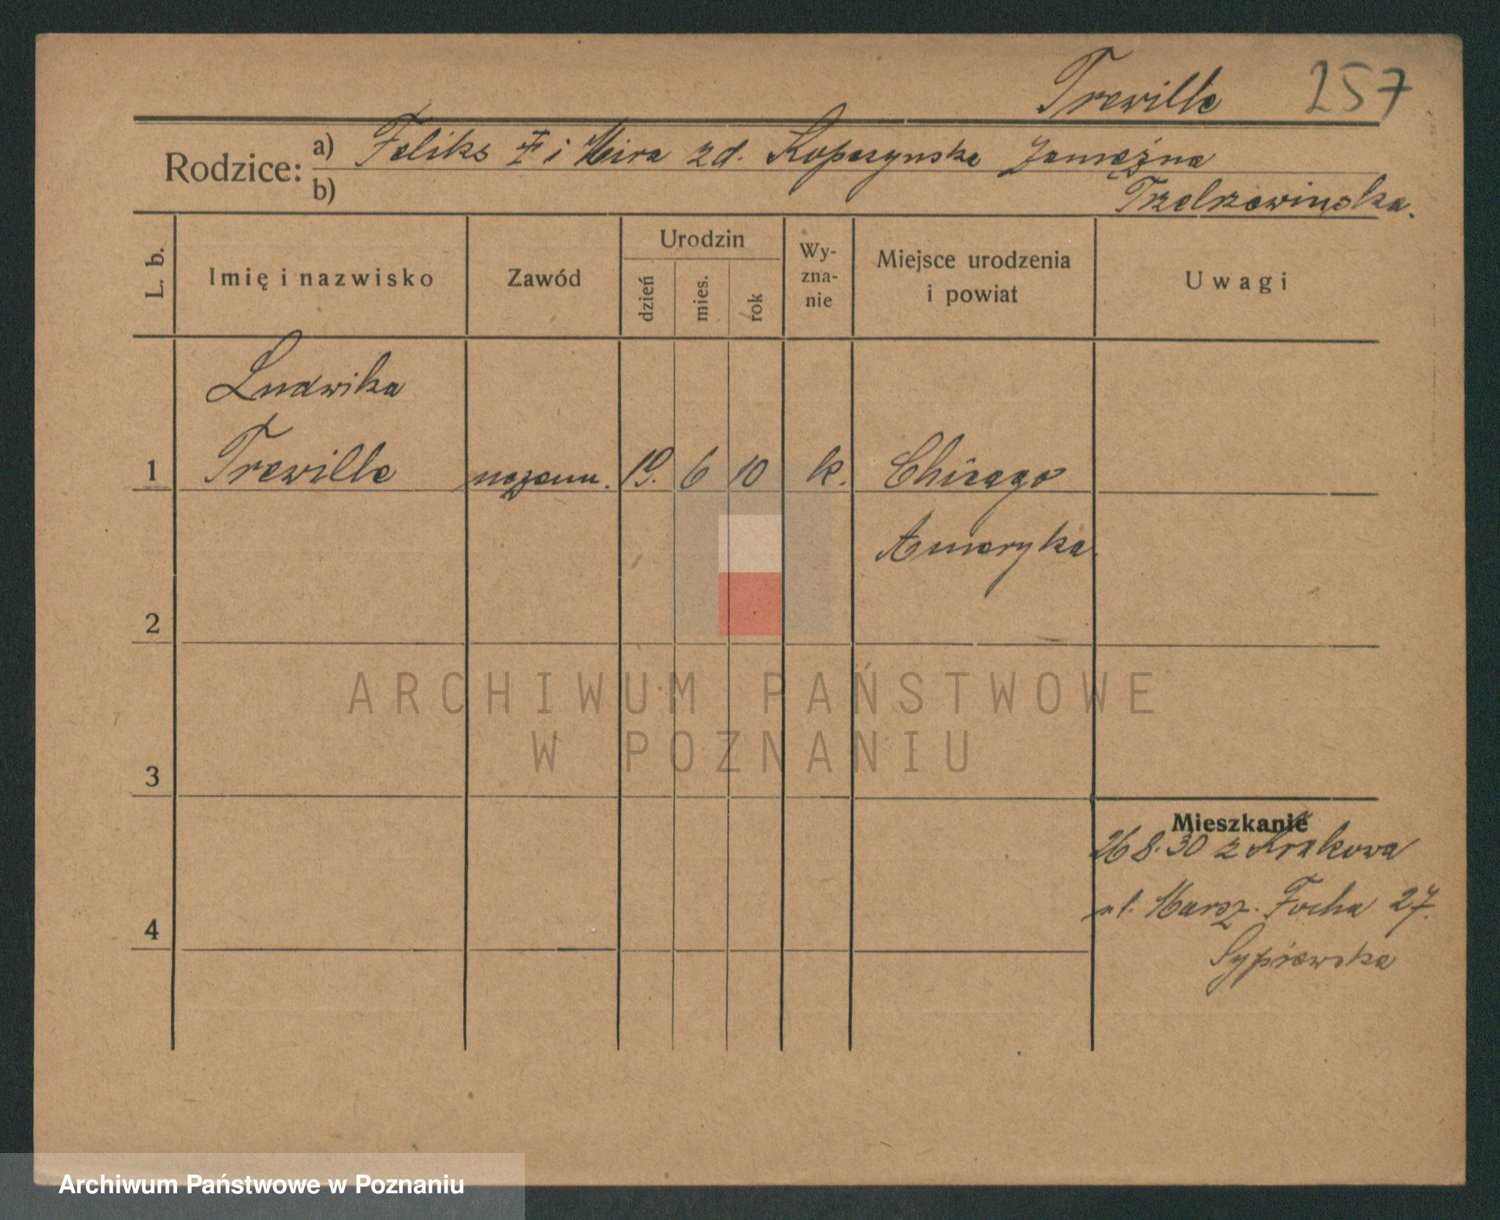 Trewille 257
Rodzice: a) Feliks i Mira zd. Kopaszynska zamężna
b)
L. b.
Imię i nazwisko
Zawód
Urodzin
dzień
mies.
rok
Wy-
zna-
nie
Miejsce urodzenia
i powiat
Uwagi
Ludwika
1 Trewille 19. 6 10 k. Chicago
Ameryka
2
3
4
Mieszkanie
26 8. 30 z Krakowa
ul. Marsz. Focha 27.
Sypniewska
ARCHIWUM PAŃSTWOWE
W POZNANIU
Archiwum Państwowe w Poznaniu